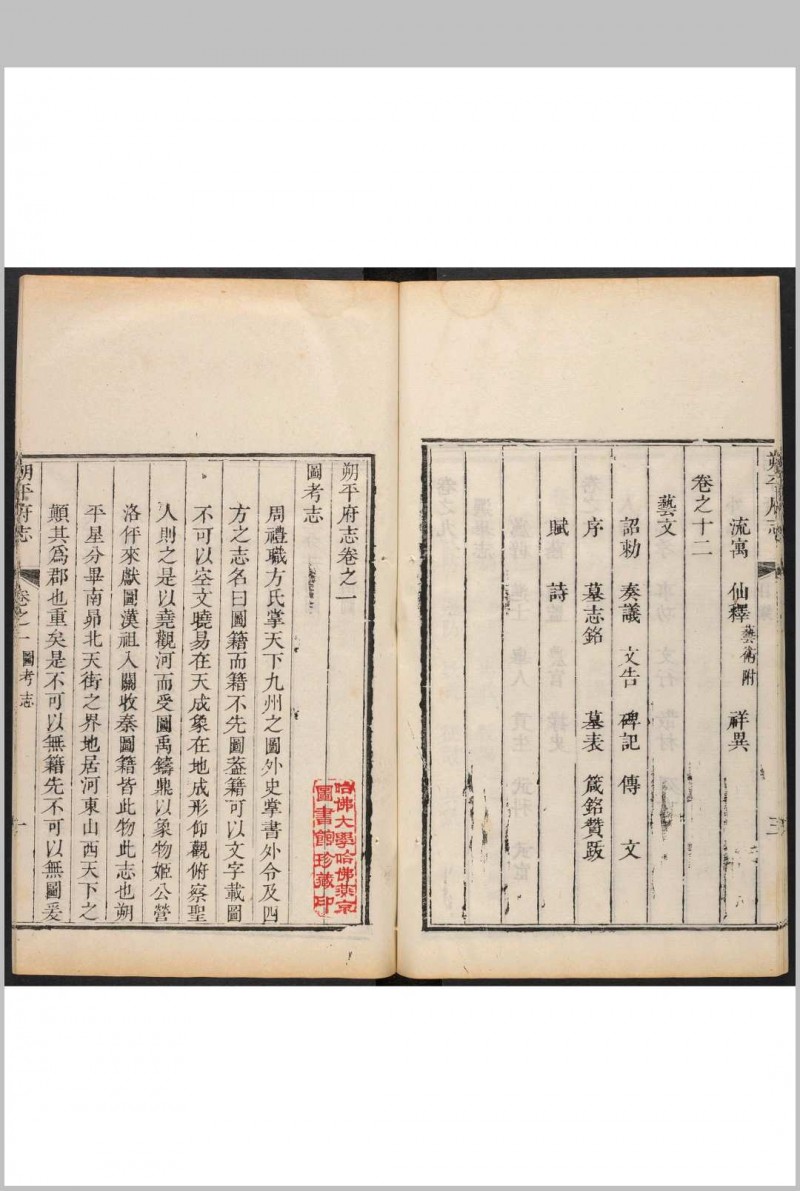 朔平府志
流寓　仙釋藝術附　祥異
卷之十二
藝文
詔勅　奏議　文告　碑記　傳　文
序　墓志銘　墓表　箴銘贊跋
賦　詩
三
朔平府志卷之一
圖考志
周禮職方氏掌天下九州之圖外史掌書外令及四
方之志名曰圖籍而籍不先圖葢籍可以文字載圖
不可以空文曉易在天成象在地成形仰觀俯察聖
人則之是以堯觀河而受圖禹鑄鼎以象物姬公營
洛伻來獻圖漢祖入關收秦圖籍皆此物此志也朔
平星分畢南昴北天街之界地居河東山西天下之
顛其為郡也重矣是不可以無籍先不可以無圖爰
朔平府志
卷之一　圖考志
一
哈佛大學哈佛燕京
圖書館珍藏印